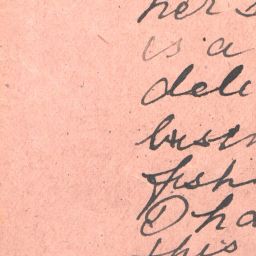 her s
is a
deli
busin
fish
I ha
this